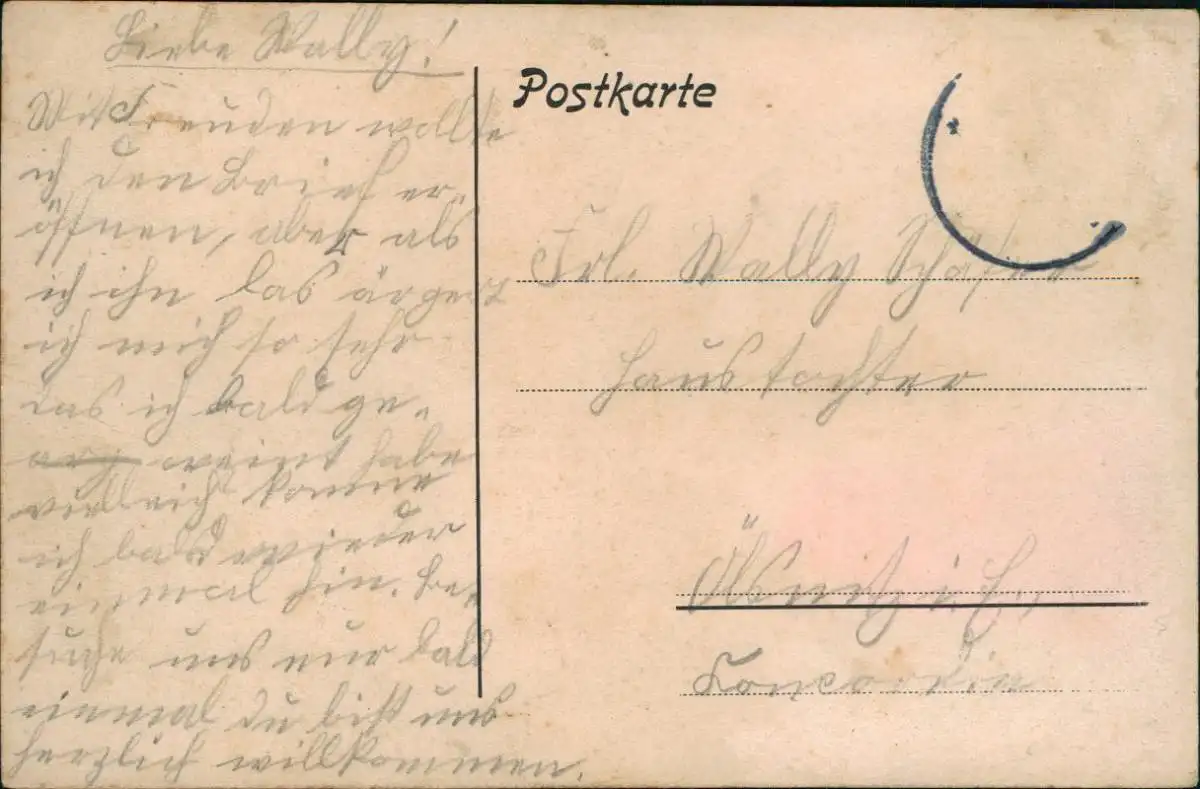 Liebe Wally!
Mit Freuden wollte
ich den Brief er-
öffnen, aber als
ich ihn las ärgert
ich mich so sehr
das ich bald ge-
weint habe
vielleich komme
ich bald wieder
einmal hin. Be-
suche uns nur bald
einmal du bist uns
herzlich willkommen.
Postkarte
Frl. Wally Schäfer
Haustochter
Ölsnitz i. E.,
Concordia